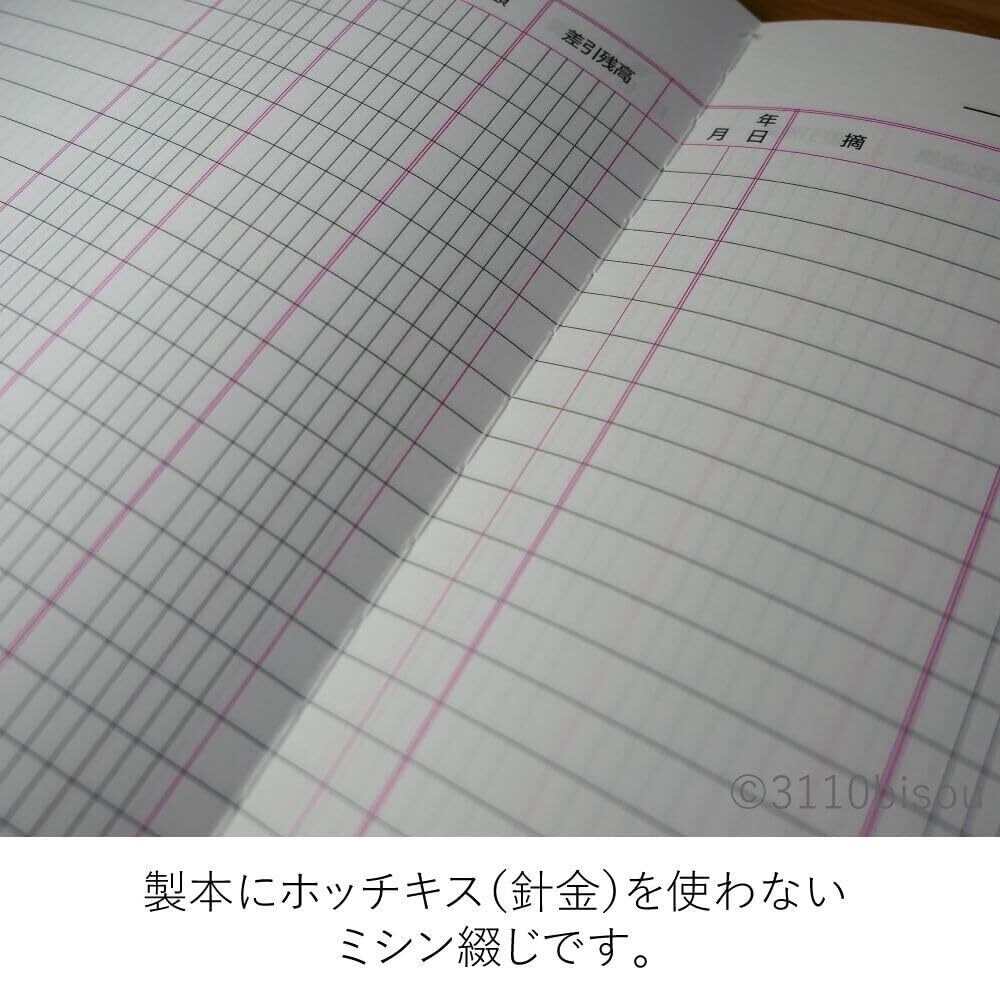 差引残高
年
月 日
摘
©3110bisou
製本にホッチキス（針金）を使わない
ミシン綴じです。